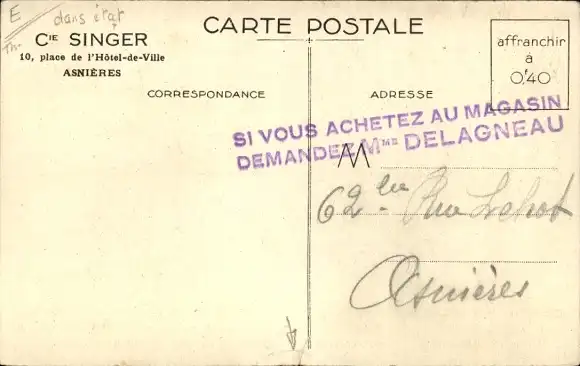 E dans état
CARTE POSTALE
Th.
Cie SINGER
10, place de l'Hôtel-de-Ville
ASNIÈRES
affranchir
à
0f40
CORRESPONDANCE
ADRESSE
SI VOUS ACHETEZ AU MAGASIN
DEMANDEZ Mme DELAGNEAU
M
62 Rue
Asnières